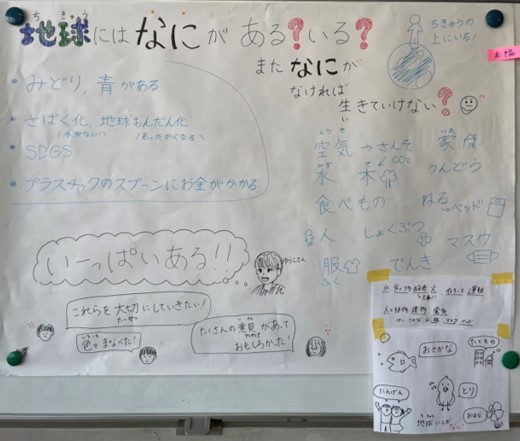 ちきゅう
地球にはなにがある?いる?
またなにが
なければ
生きていけない?
ちきゅうの
上にいる!
• みどり、青がある
• さばく化、地球おんだん化
水がない
あったかくなる
• SDGS
• プラスチックのスプーンにお金がかかる
くうき
空気→さんそ
CO2
水 木
食べもの
人 しょくぶつ
服 でんき
ふく
家
うんどう
ねる ベッド
マスク
いーっぱいある!!
これらを大切にしていきたい!
色々まなべた!
たくさんの意見があって
おもしろかった!
おさかな
たてもの
にんげん
とり
おはな